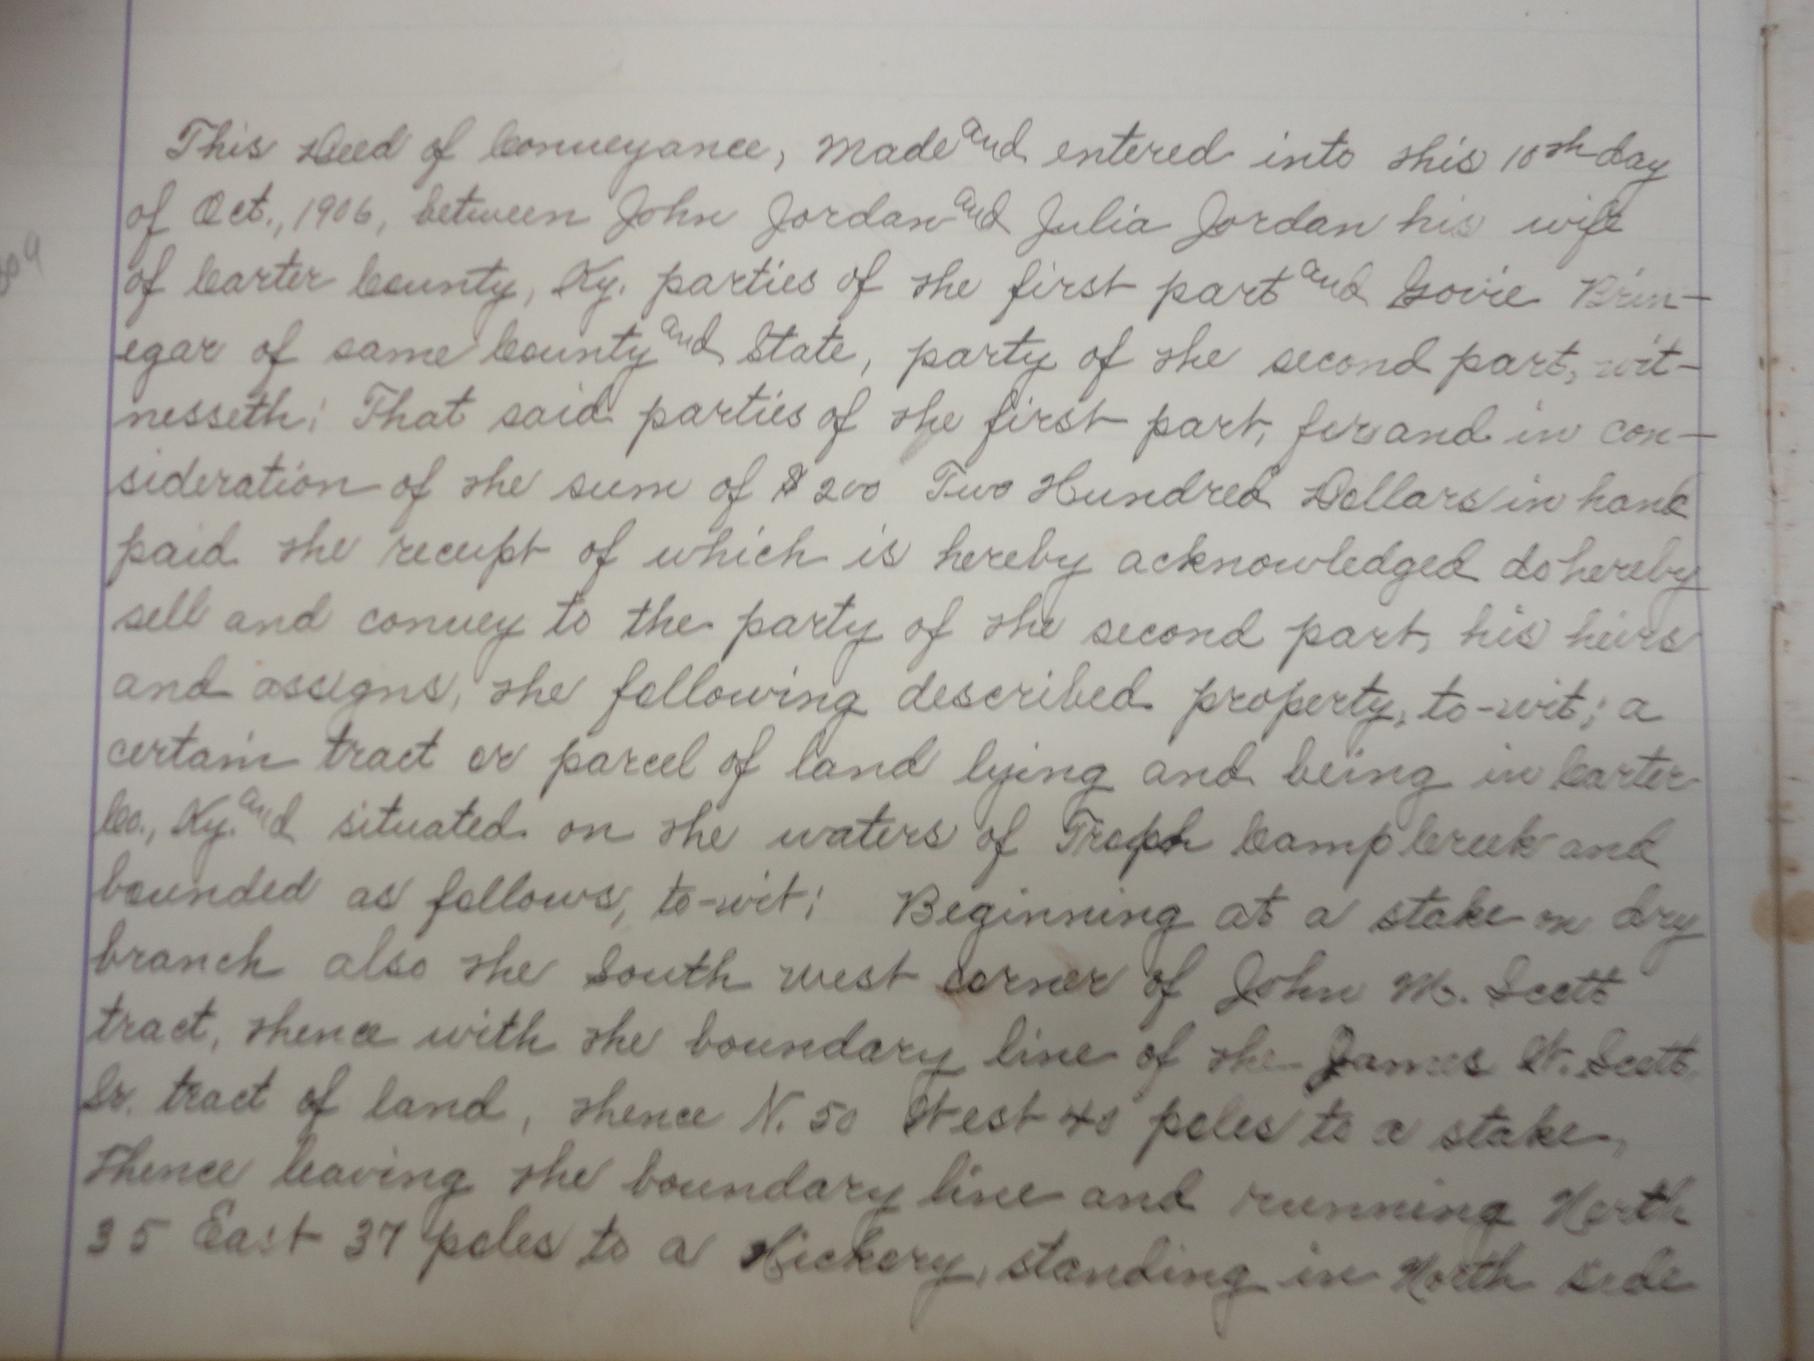 This Deed of Conveyance, made and entered into this 10th day
of Oct., 1906, between John Jordan and Julia Jordan his wife
of Carter County, Ky. parties of the first part and Govie Brin-
egar of same County and State, party of the second part, wit-
nesseth: That said parties of the first part, for and in con-
sideration of the sum of $200 Two Hundred Dollars in hand
paid the receipt of which is hereby acknowledged do hereby
sell and convey to the party of the second part, his heirs
and assigns, the following described property, to-wit; a
certain tract or parcel of land lying and being in Carter
Co., Ky. and situated on the waters of Camp Creek and
bounded as follows, to-wit; Beginning at a stake on dry
branch also the South west corner of John M. Scott
tract, thence with the boundary line of the James W. Scott
Sr. tract of land, thence N. 50 West 40 poles to a stake,
Thence leaving the boundary line and running North
35 East 37 poles to a Hickory, standing in North side